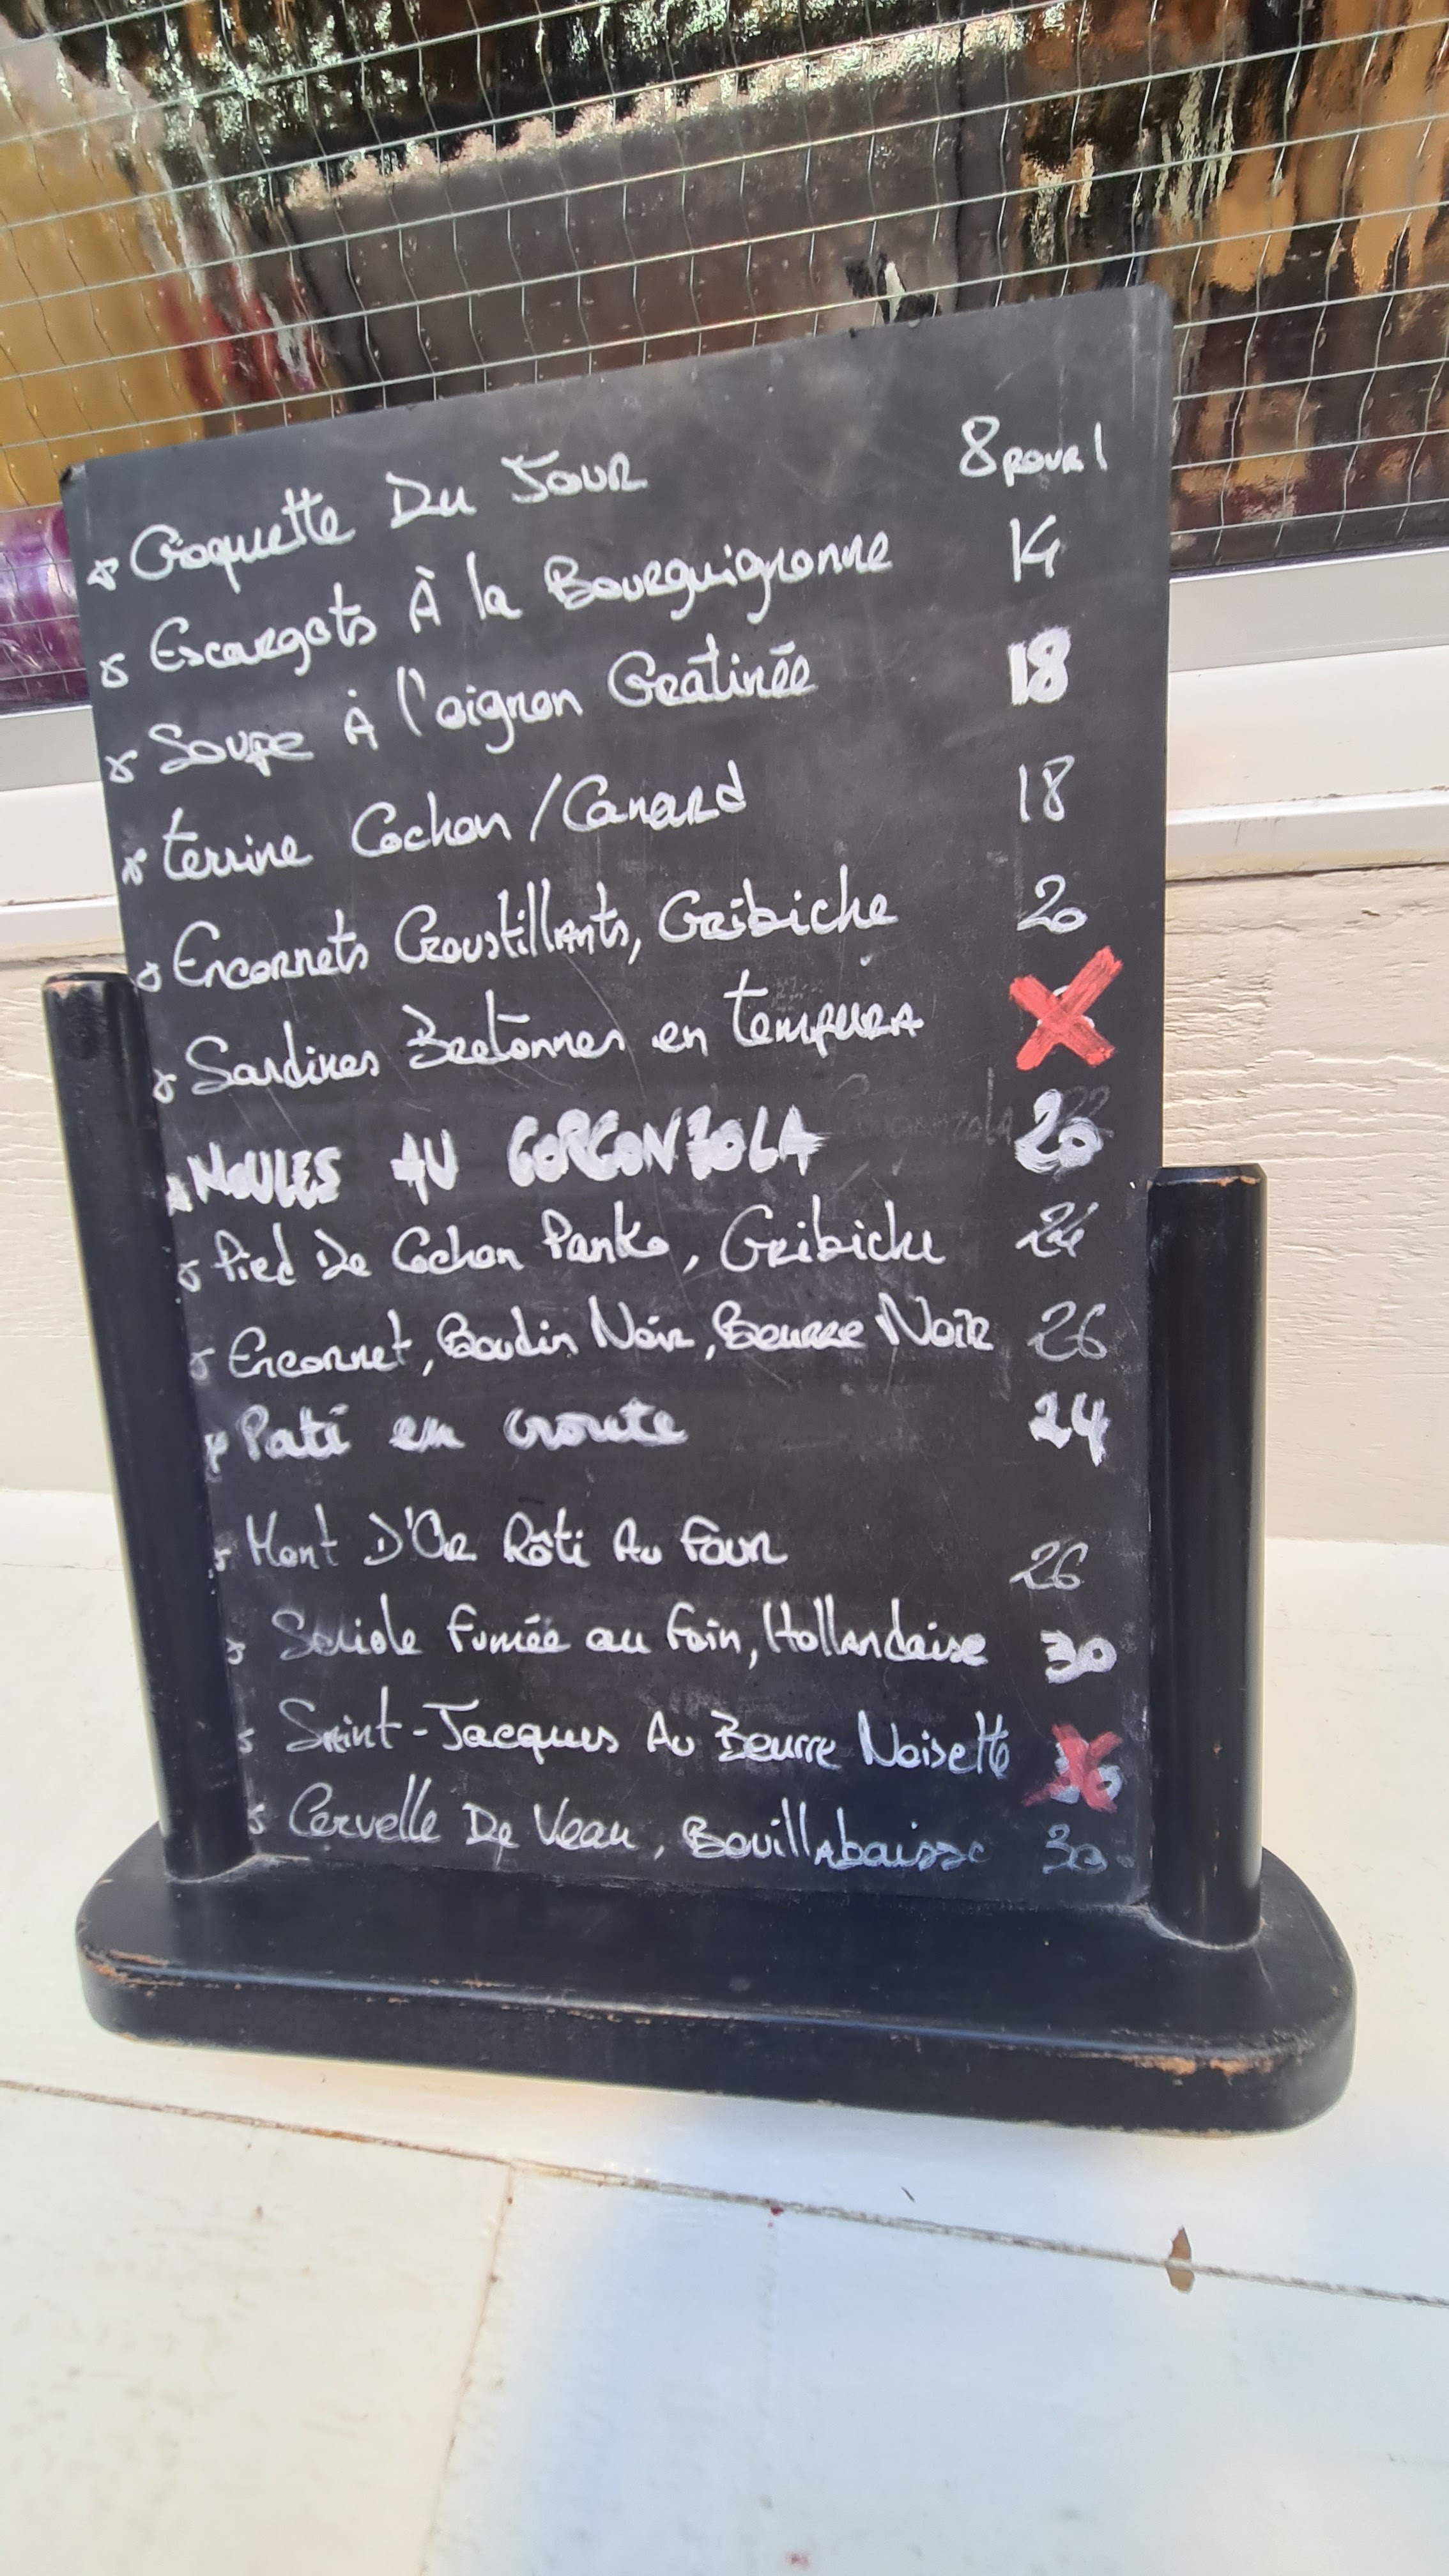 Croquette Du Jour 8 pour 1
Escargots À la Bourguignonne 14
Soupe À l'oignon Gratinée 18
Terrine Cochon / Canard 18
Encornets Croustillants, Gribiche 20
Sardines Bretonnes en Tempura
MOULES AU GORGONZOLA 20
Pied De Cochon Panko, Gribiche 24
Encornet, Boudin Noir, Beurre Noir 26
Paté en croute 24
Mont D'Or Rôti Au Four 26
Sériole fumée au foin, Hollandaise 30
Saint-Jacques Au Beurre Noisette
Cervelle De Veau, Bouillabaisse 30